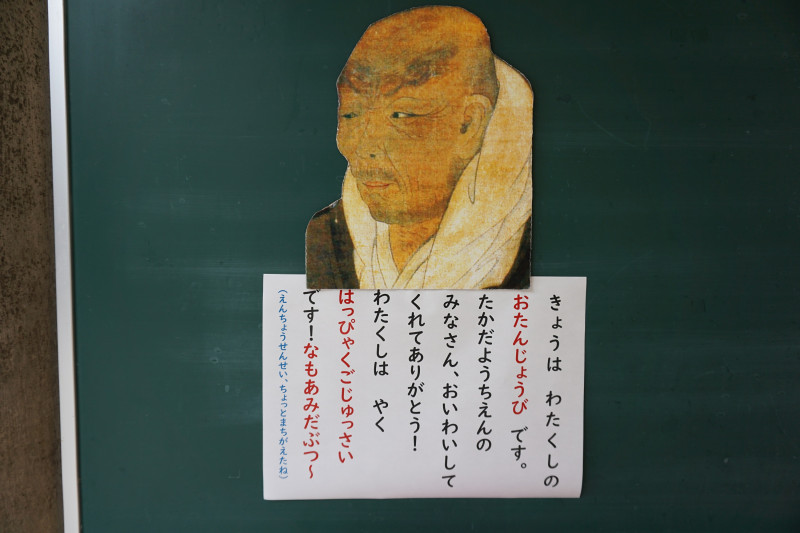 きょうは　わたくしの
おたんじょうび です。
たかだようちえんの
みなさん、おいわいして
くれてありがとう！
わたくしは　やく
はっぴゃくごじゅっさい
です！なもあみだぶつ～
（えんちょうせんせい、ちょっとまちがえたね）